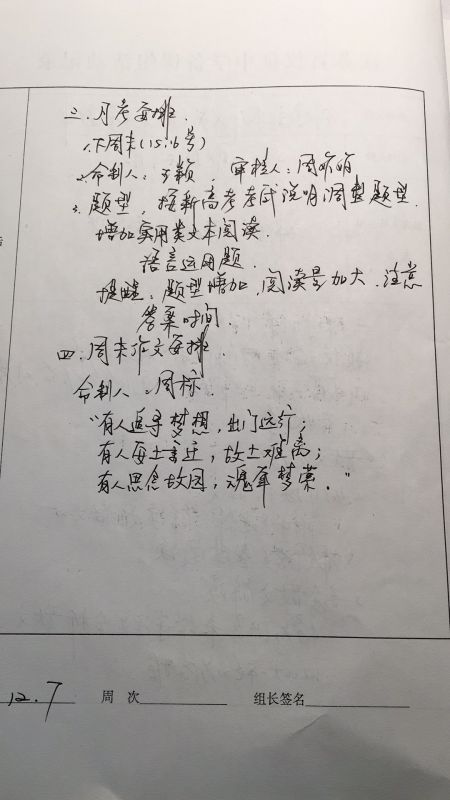 三.月考安排.
1.下周末(15.16号)
2.命制人:于颖, 审核人:周
3.题型,按新高考考试说明调整题型.
增加实用类文本阅读.
语言运用题.
提醒:题型增加,阅读量加大,注意
答案时间
四.周末作文安排.
命制人:周标
"有人追寻梦想,出门远行;
有人安土重迁,故土难离;
有人思念故园,魂牵梦萦."
12.7 周 次 组长签名